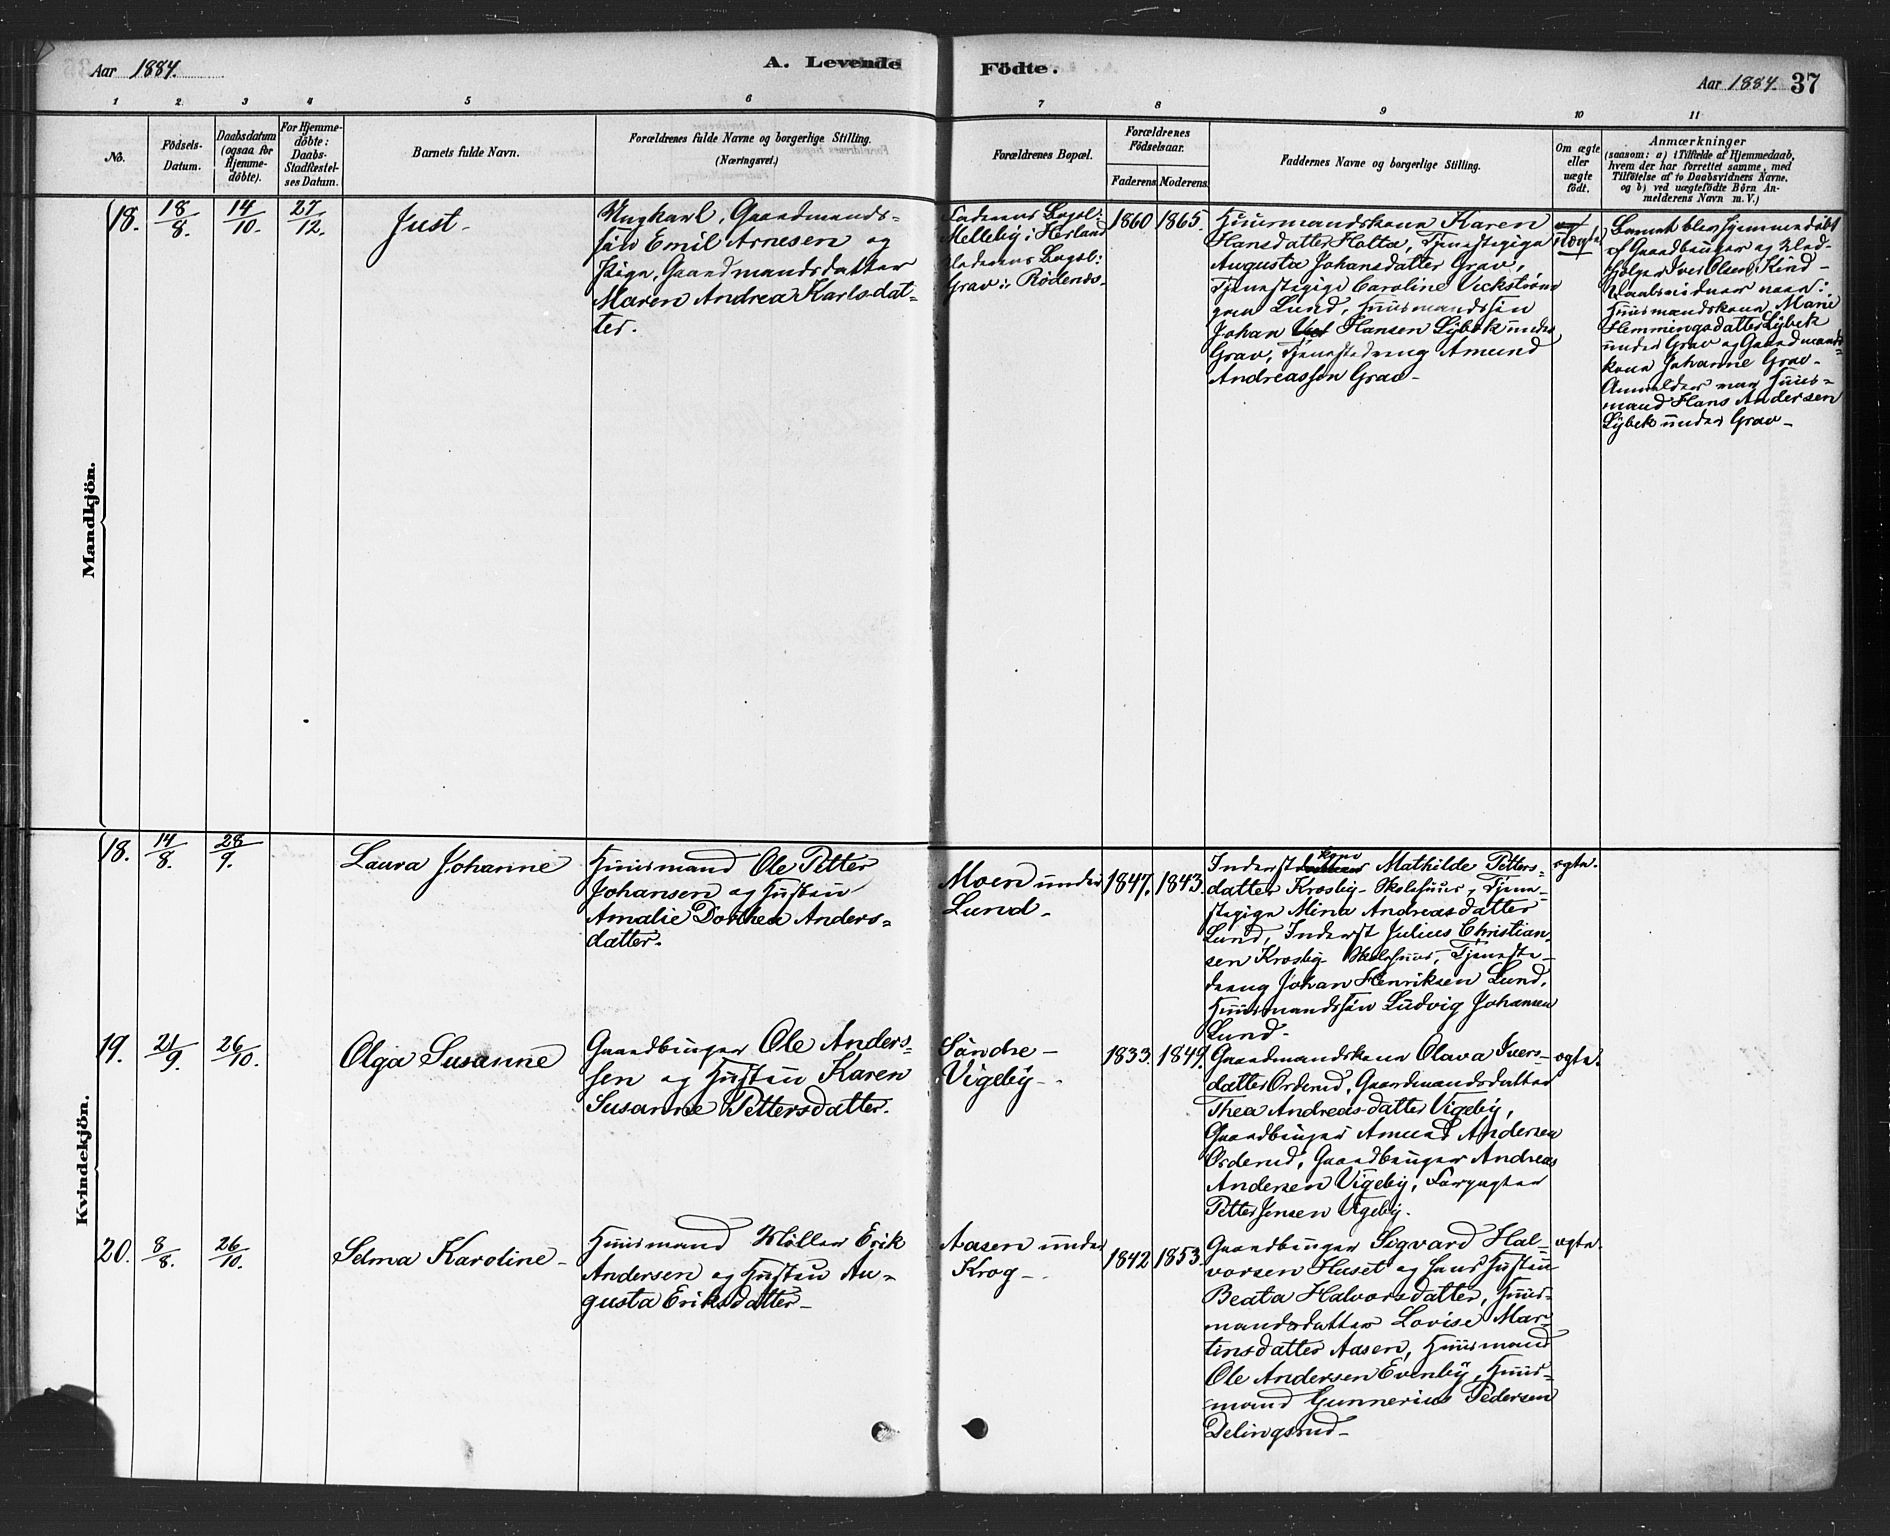 Aar 1884.
A. Levende
Födte.
Aar 1884. 37
1 2. 3 4 5 6
7 8 9 10 11
No.
Födsels-
Datum.
Daabsdatum
(ogsaa for
Hjemme-
döbte).
For Hjemme-
döbte:
Daabs-
Stadfæstel-
ses Datum.
Barnets fulde Navn.
Forældrenes fulde Navne og borgerlige Stilling.
(Næringsvei.)
Forældrenes Bopæl.
Forældrenes
Födselsaar.
Faderens. Moderens.
Faddernes Navne og borgerlige Stilling.
Om ægte
eller
uægte
födt.
Anmærkninger
(saasom: a) i Tilfælde af Hjemmedaab,
hvem der har forrettet samme, med
Tilföielse af to Daabsvidners Navne.
og b) ved uægtefödte Börn An-
melderens Navn m. V.)
Mandkjön.
18. 18/8. 14/10. 27/12.
Just.
Ungkarl, Gaardmands-
søn Emil Arnesen og
Pige, Gaardmandsdatter
Maren Andrea Karlsdat-
ter.
Faderens Bopæl:
Melleby i Herland
Moderens Bopæl:
Grav i Rödenæs.
1860 1865.
Huusmandskone Karen
Hansdatter Holta, Tjenestepige
Augusta Johansdatter Grav,
Tjenestepige Caroline Veckström
Lund, Huusmandssøn
Johan Hansen Lybek under
Grav, Tjenestedreng Amund
Andreassen Grav-
Uægte
Barnet blev hjemmedøbt
af Gaardbruger og Kled-
Iver Olsen Kind-
Daabsvidner vare:
Huusmandskone Marie
Flemmingsdatter Lybek
under Grav og Gaardmands-
kone Johanne Grav-
Anmelder var Huus-
mand Hans Andersen
Lybek under Grav-
Kvindekjön.
18. 14/8. 28/9.
Laura Johanne
Huusmand Ole Petter
Johansen og Hustru
Amalie Dorthea Anders-
datter.
Moen under
Lund-
1847. 1843.
Inderstkone Mathilde Petters-
datter Krosby Skolehuus, Tjene-
stepige Mina Andreasdatter
Lund, Inderst Julius Christian-
sen Krosby Skolehuus, Tjeneste-
dreng Johan Henriksen Lund,
Huusmandssøn Ludvig Johansen
Lund-
ægte.
19. 21/9. 26/10.
Olga Susanne
Gaardbruger Ole Anders-
sen og Hustru Karen
Susanne Pettersdatter.
Søndre-
Vigeby-
1833. 1849.
Gaardmandskone Olava Ivers-
datter Ørderud, Gaardmandsdatter
Thea Andreasdatter Vigeby,
Gaardbruger Amund Andersen
Ørderud, Gaardbruger Andreas
Andersen Vigeby, Forpagter
Petter Jensen Vigeby.
ægte.
20. 8/8. 26/10.
Selma Karoline-
Huusmand Møller Erik
Andersen og Hustru Au-
gusta Eriksdatter-
Aasen under
Krog-
1842 1853.
Gaardbruger Sigvard Hal-
vorsen Huset og hans Hustru
Beata Halvorsdatter, Huus-
mandsdatter Lovise Mar-
tinsdatter Aasen, Huusmand
Ole Andersen Evenby, Huus-
mand Gunnerius Pedersen
Delingsrud-
ægte.